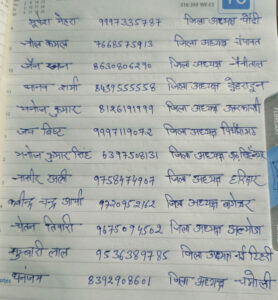 मेहरा 9997335787 जिला अध्यक्ष पौड़ी
कमल 7668575913 जिला अध्यक्ष चंपावत
खान 8630806290 जिला अध्यक्ष नैनीताल
शर्मा 8439555558 जिला अध्यक्ष देहरादून
मनोज कुमार 8126191999 जिला अध्यक्ष उत्तरकाशी
जय बिष्ट 9997119072 जिला अध्यक्ष पिथौरागढ़
मनोज कुमार सिंह 6397508131 जिला अध्यक्ष
9758974907 जिला अध्यक्ष हरिद्वार
चन्द्र आर्या 9720952162 जिला अध्यक्ष बागेश्वर
चेतन तिवारी 9675094502 जिला अध्यक्ष अल्मोड़ा
लाल 9536389785 जिला अध्यक्ष नई टिहरी
धनंजय 8392908601 जिला अध्यक्ष चमोली